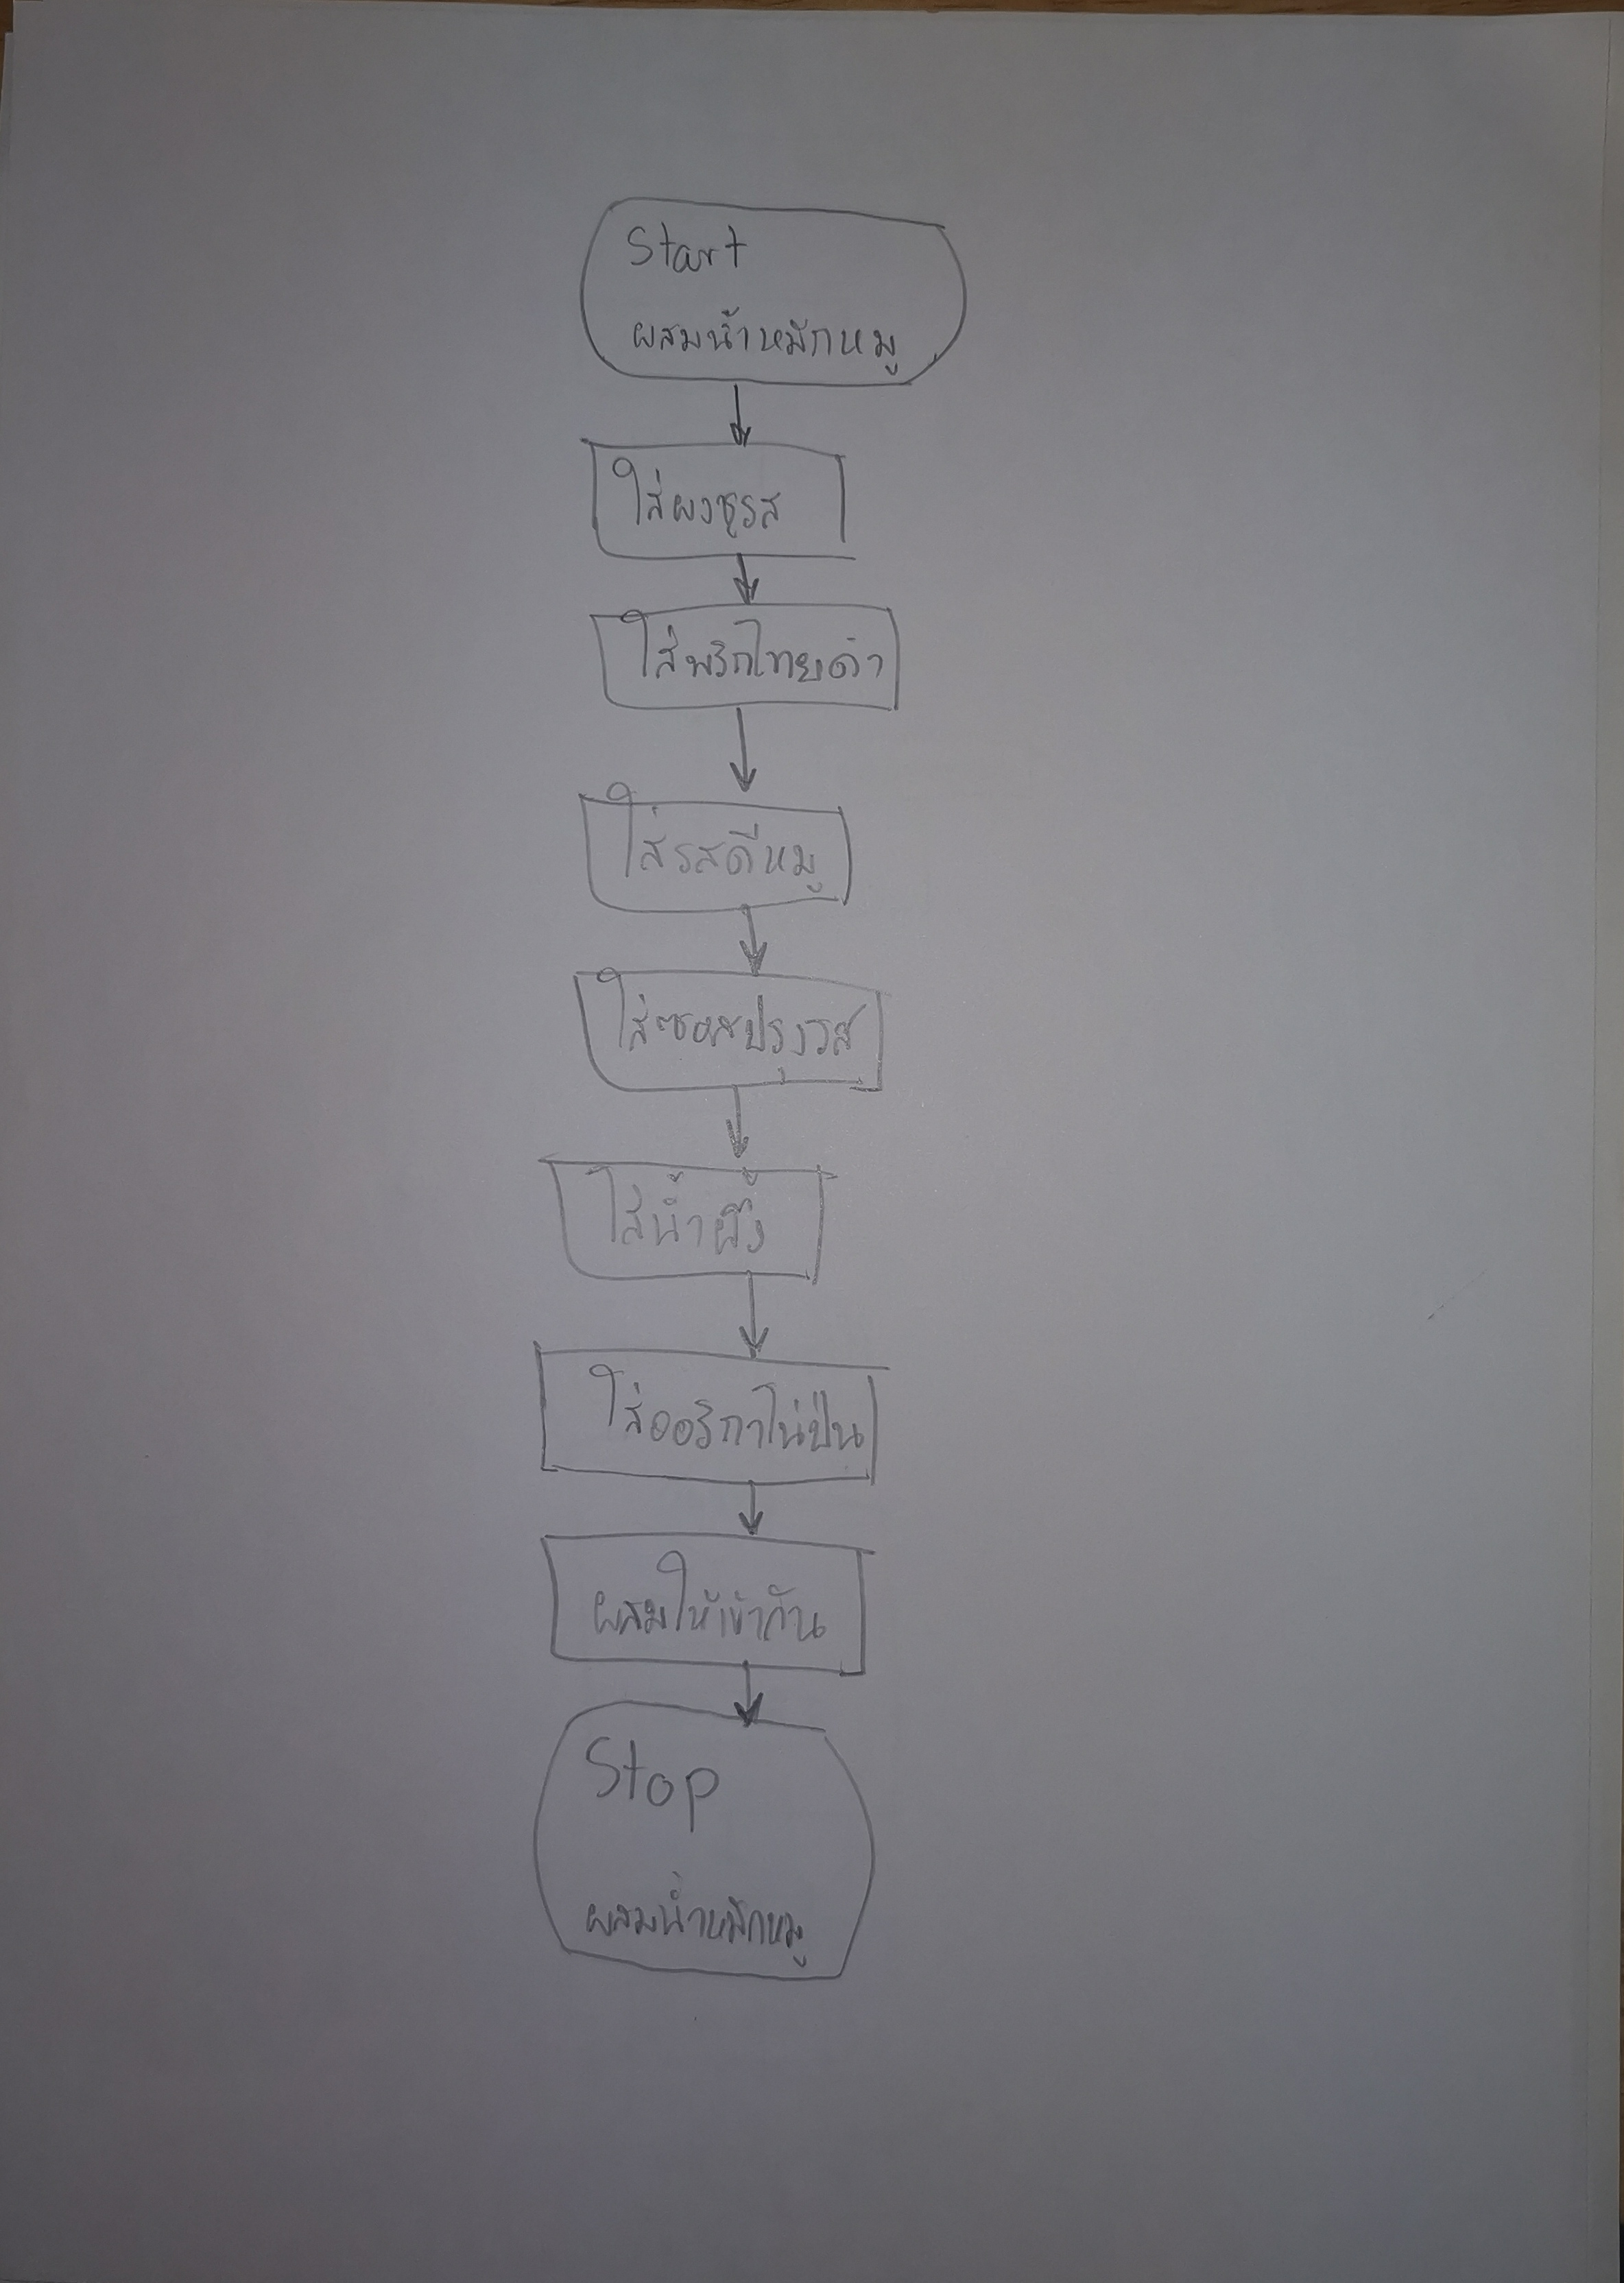 Start
ผสมน้ำหมักหมู
ใส่ผงชูรส
ใส่พริกไทยดำ
ใส่รสดีหมู
ใส่ซอสปรุงรส
ใส่น้ำผึ้ง
ใส่ออริกาโน่ป่น
ผสมให้เข้ากัน
Stop
ผสมน้ำหมักหมู